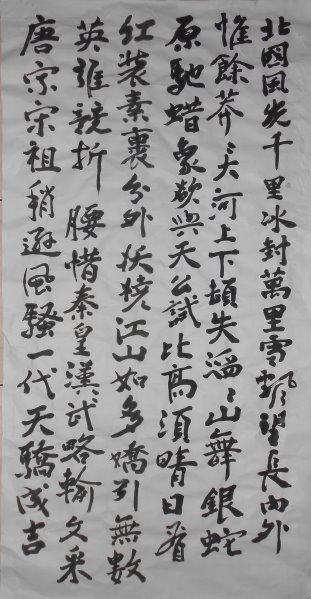 北國風光千里冰封萬里雪飄望長內外
惟餘莽〻大河上下頓失滔〻山舞銀蛇
原馳蜡象欲與天公試比高須晴日看
紅裝素裹分外妖嬈江山如多嬌引無數
英雄競折腰惜秦皇漢武略輸文采
唐宗宋祖稍遜風騷一代天驕成吉